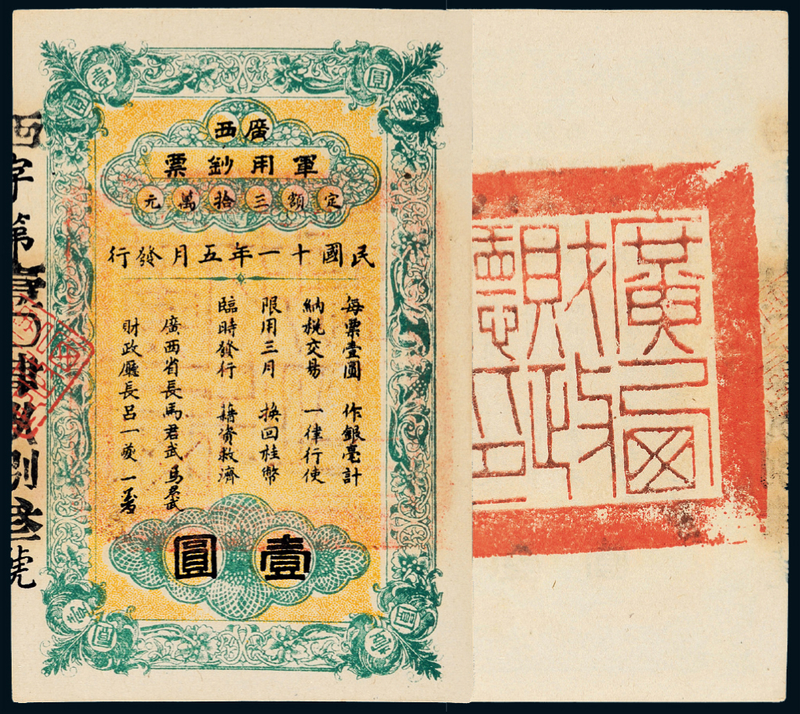 廣西
軍用鈔票
定額三拾萬元
民國十一年五月發行
每票壹圓 作銀毫計
納稅交易 一律行使
限用三月 換回桂幣
臨時發行 籍資救濟
廣西省長馬君武 馬君武
財政廳長呂一夔 一夔
壹圓
壹圓
壹圓
西字第 號
廣西財政廳印